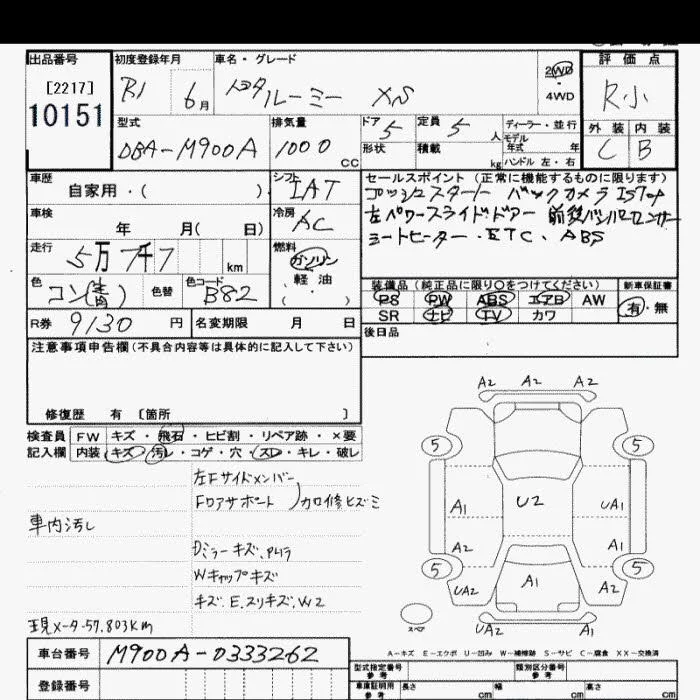 出品番号 初度登録年月 車名・グレード 評価点
[2217]
10151
R1 6月 トヨタルーミー XS 2WD ・ 4WD R小
型式 排気量 ドア 5 定員 5人 ディーラー・並行 外装 内装
DBA-M900A 1000 CC 形状 積載 kg モデル年式 年 ハンドル 左・右 C B
車歴 自家用・( ) シフト IAT
セールスポイント(正常に機能するものに限ります)
プッシュスタート バックカメラ ISTOP
左パワースライドドアー
シートヒーター・ETC、ABS
車検 年 月( 日) 冷房 AC
走行 5万7千7 km 燃料 ガソリン 軽油 ( )
色 コン(青) 色替 色コード B82
装備品(純正品に限り○をつけてください) 新車保証書
PS PW ABS エアB AW 有・無
SR ナビ TV カワ
R券 9130円 名変期限 月 日 後日品
注意事項申告欄(不具合内容等は具体的に記入して下さい)
修復歴 有 〔箇所 〕
検査員記入欄 FW キズ・飛石・ヒビ割・リペア跡・×要
内装 キズ・汚レ・コゲ・穴・スレ・キレ・破レ
左Fサイドメンバー
Fロアサポート カロ修ヒズミ
車内汚し
Dミラーキズ、
Wキャップキズ
キズ、E、スリキズ、W2
現メータ-57,803KM
A2 A2 A2
5 5
A1 U2 UA1
A2 A1
5 5
UA2 A1 A2
スペア UA2 A1
A-キズ E-エクボ U-凹み W-補修跡 S-サビ C-腐食 XX-交換済
車台番号 M900A-0333262
登録番号
型式指定番号 参考 類別区分番号 参考
車庫証明用 参考 長さ cm 幅 cm 高さ cm